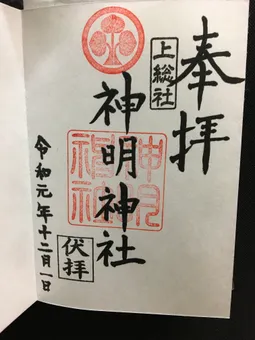 奉拝
上総社
神明神社
伏拝
令和元年十二月一日